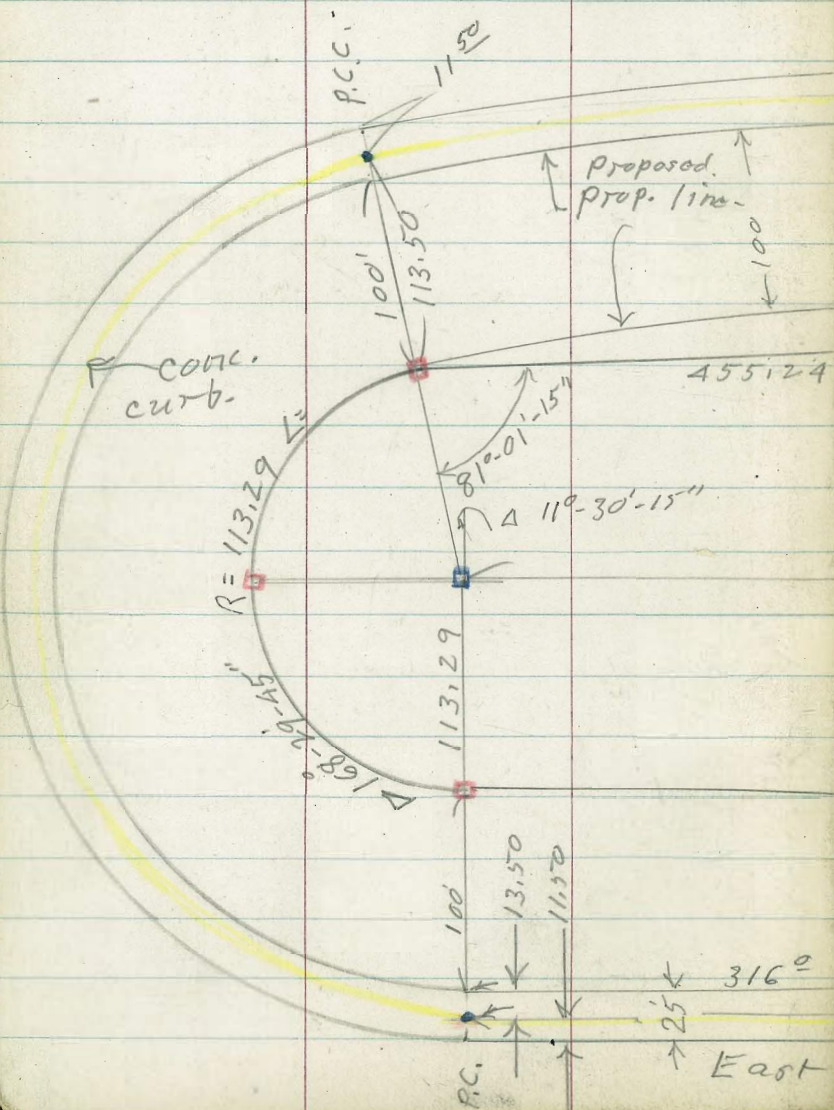 P.C.C.
11 50
Proposed
prop. line
100'
113.50
100
conc.
curb.
455.24
81°-01'-15"
Δ 11°-30'-15"
R = 113.29
113.29
Δ 168°-29'-45"
100'
13.50
11.50
316°
25'
East
P.C.